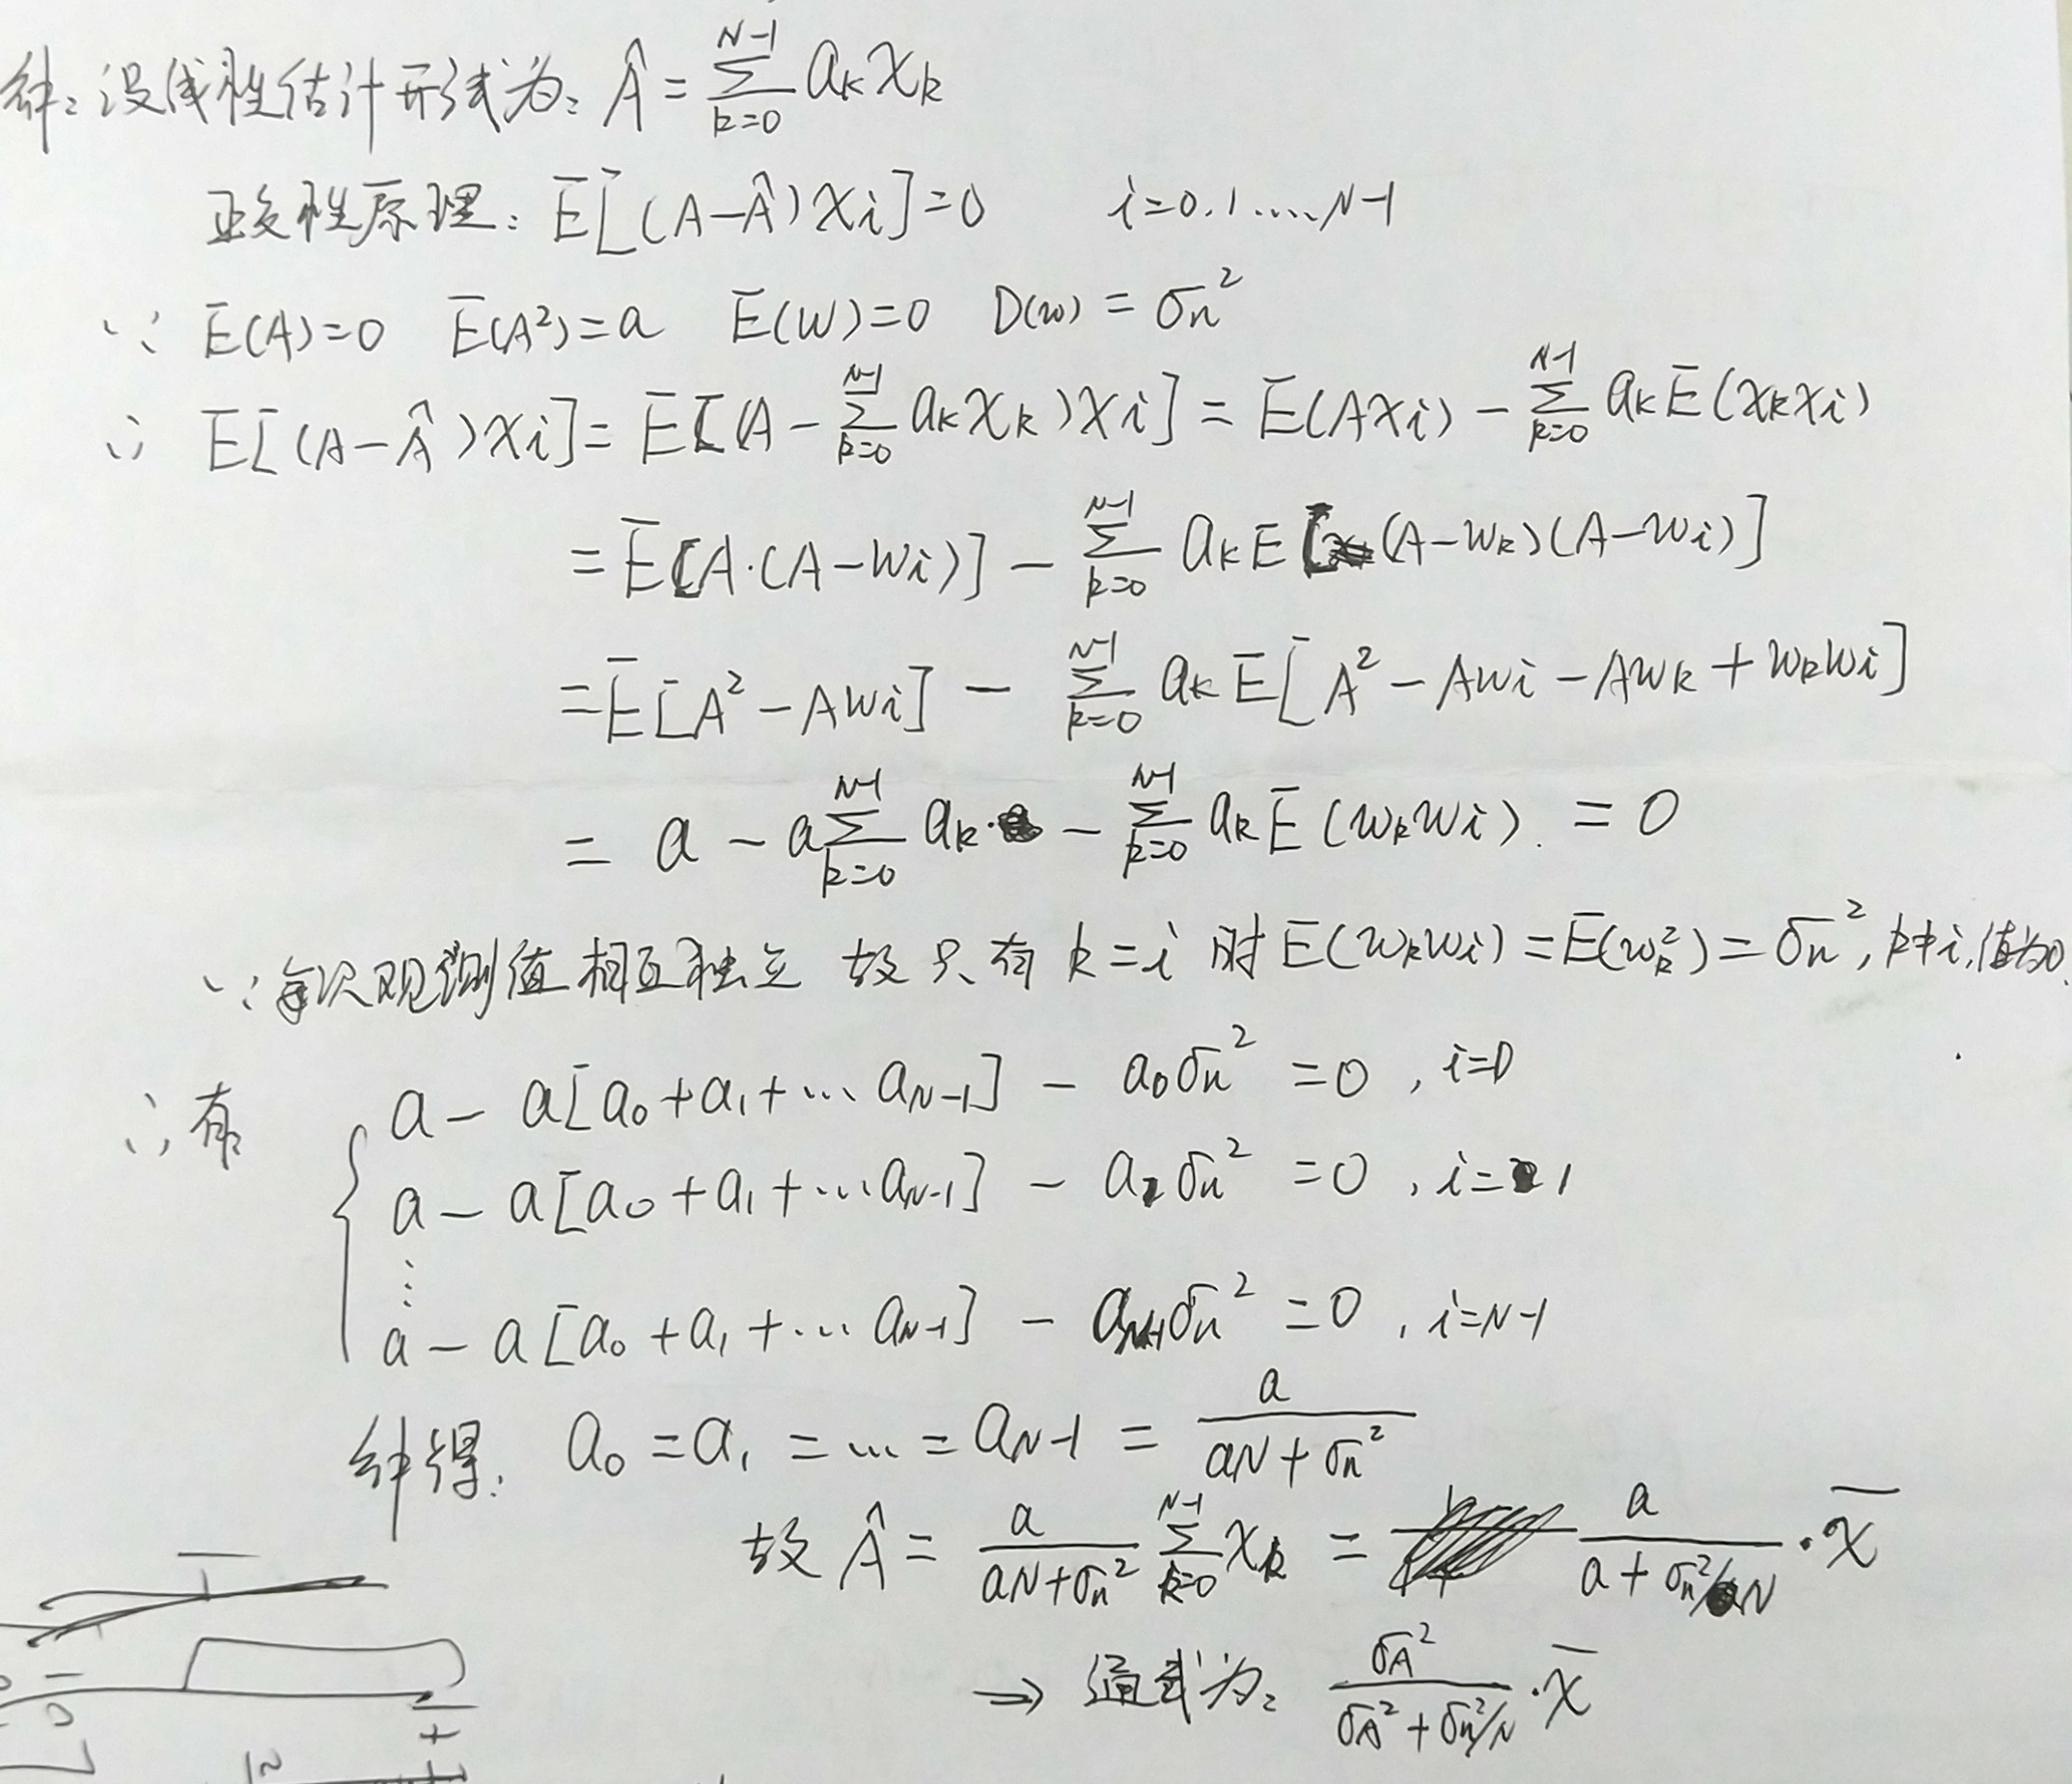 解：设线性估计形式为：Â = ∑_{k=0}^{N-1} a_k x_k
正交性原理：E[(A-Â)x_i]=0  i=0.1.....N-1
∵ E(A)=0  E(A²)=a  E(W)=0  D(w) = σ_n²
∴ E[(A-Â)x_i] = E[(A - ∑_{k=0}^{N-1} a_k x_k)x_i] = E(Ax_i) - ∑_{k=0}^{N-1} a_k E(x_k x_i)
= E[A·(A-w_i)] - ∑_{k=0}^{N-1} a_k E[(A-w_k)(A-w_i)]
= E[A²-Aw_i] - ∑_{k=0}^{N-1} a_k E[A²-Aw_i-Aw_k+w_k w_i]
= a - a∑_{k=0}^{N-1} a_k· - ∑_{k=0}^{N-1} a_k E(w_k w_i). = 0
∵ 每次观测值相互独立 故只有 k=i 时 E(w_k w_i) = E(w_k²) = σ_n², k≠i,值为0.
∴有 a - a[a_0+a_1+… a_{N-1}] - a_0σ_n² = 0 , i=0
a - a[a_0+a_1+…a_{N-1}] - a_1σ_n² = 0 , i=1
⋮
a - a[a_0+a_1+… a_{N-1}] - a_{N-1}σ_n² = 0 , i=N-1
解得： a_0 = a_1 = … = a_{N-1} = a/(aN+σ_n²)
故 Â = a/(aN+σ_n²) ∑_{k=0}^{N-1} x_k = a/(a+σ_n²/N) · x̄
→ 通式为： σ_A²/(σ_A²+σ_n²/N) · x̄